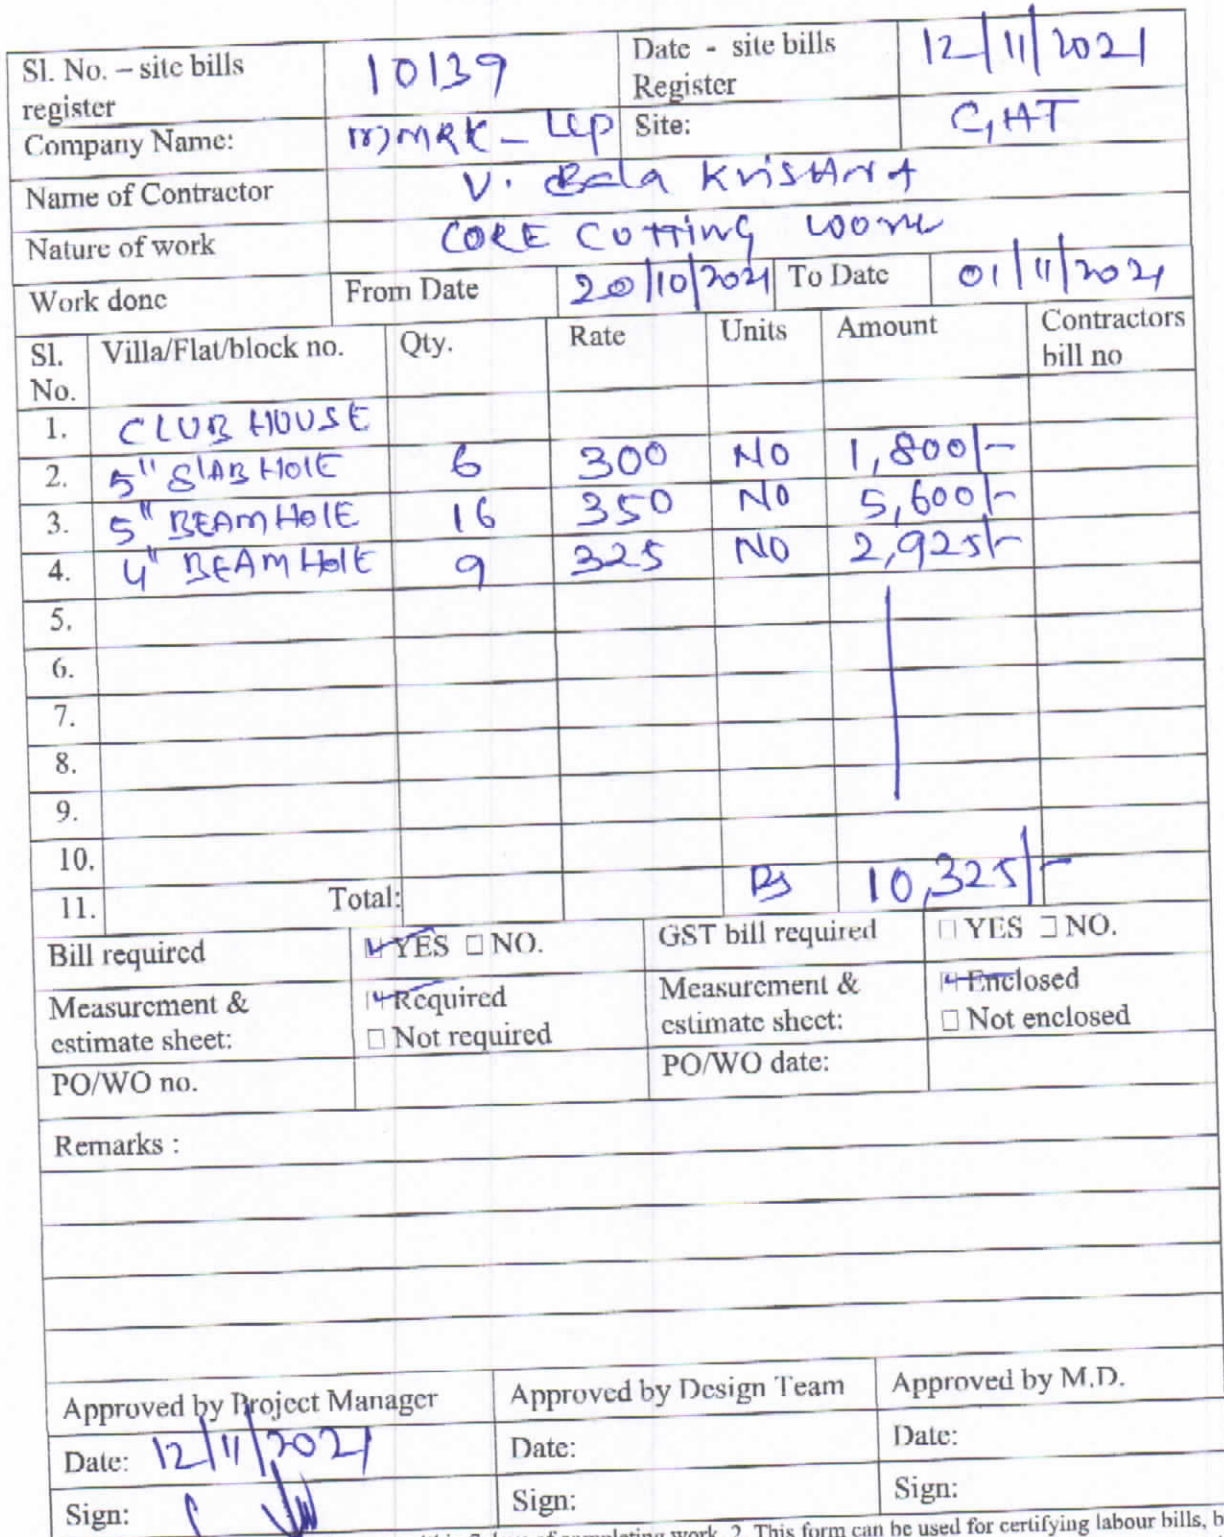 Sl. No. – site bills register 10139 Date - site bills Register 12/11/2021
Company Name: MMRK - LLP Site: GHT
Name of Contractor V. Bala KrisHnA
Nature of work CORE CUTTING WORK
Work done From Date 20/10/2021 To Date 01/11/2021
Sl. No. Villa/Flat/block no. Qty. Rate Units Amount Contractors bill no
1. CLUB HOUSE
2. 5" SLAB HOLE 6 300 NO 1,800/-
3. 5" BEAM HOLE 16 350 NO 5,600/-
4. 4" BEAM HOLE 9 325 NO 2,925/-
5.
6.
7.
8.
9.
10.
11. Total: Rs 10,325/-
Bill required YES NO. GST bill required YES NO.
Measurement & estimate sheet: Required Not required Measurement & estimate sheet: Enclosed Not enclosed
PO/WO no. PO/WO date:
Remarks :
Approved by Project Manager Approved by Design Team Approved by M.D.
Date: 12/11/2021 Date: Date:
Sign: Sign: Sign:
completing work. 2. This form can be used for certifying labour bills, b